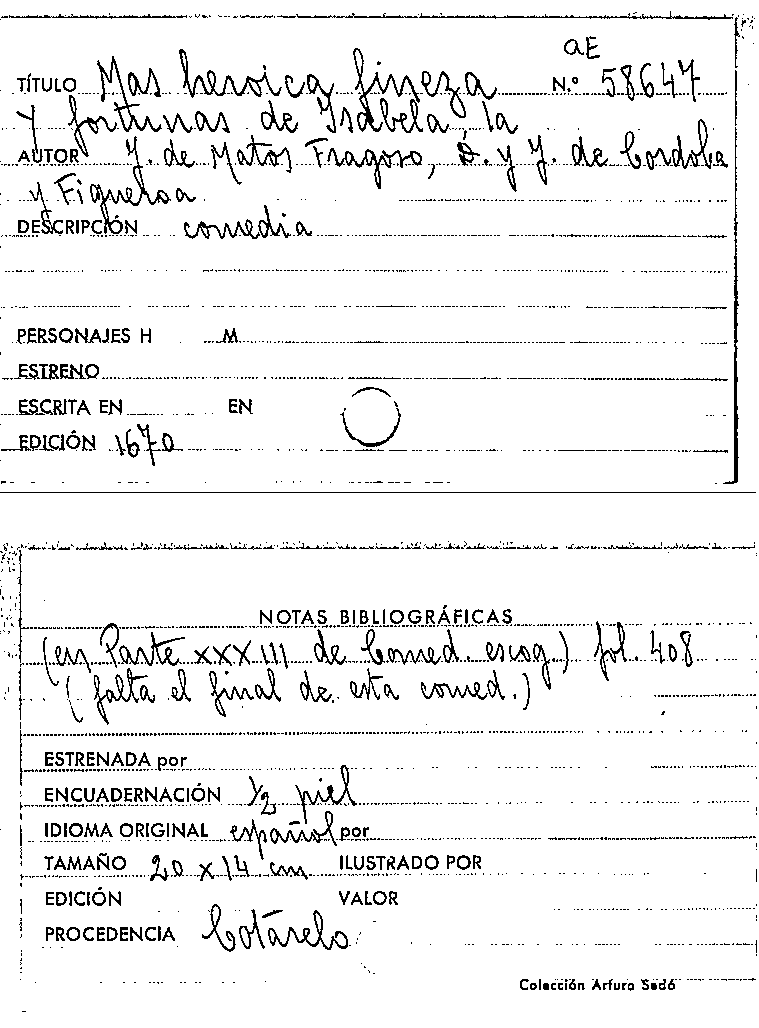 aE
TÍTULO Mas heroica fineza N.º 58647
y fortunas de Isabela, la
AUTOR J. de Matos Fragoso, D. y J. de Cordoba
y Figueroa
DESCRIPCIÓN comedia
PERSONAJES H M
ESTRENO
ESCRITA EN EN
EDICIÓN 1670
NOTAS BIBLIOGRÁFICAS
(en Parte XXXIII de Comed. escog.) fol. 408
(falta el final de esta comed.)
ESTRENADA por
ENCUADERNACIÓN 1/2 piel
IDIOMA ORIGINAL español por
TAMAÑO 20 x 14 cm ILUSTRADO POR
EDICIÓN VALOR
PROCEDENCIA Cotarelo
Colección Arturo Sedó